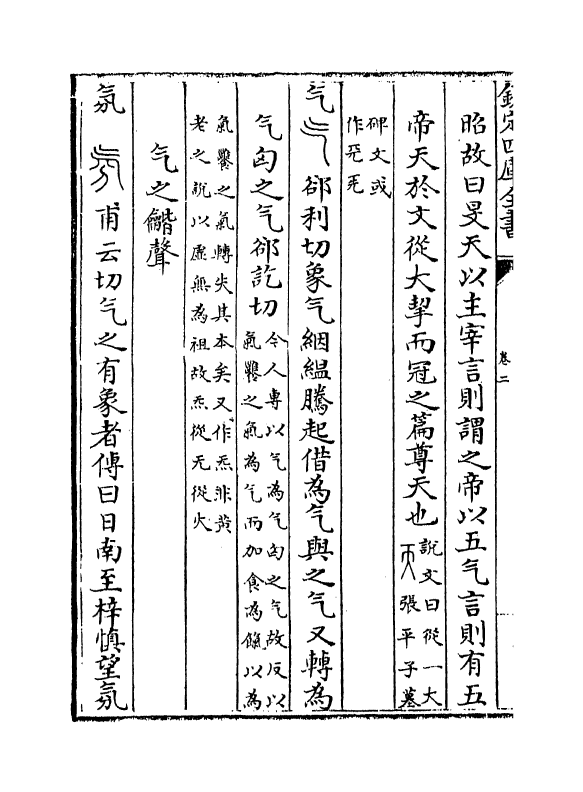 欽定四庫全書
卷二
昭故曰旻天以主宰言則謂之帝以五气言則有五
帝天於文從大挈而冠之篇尊天也說文曰從一大
張平子墓
碑文或
作兲𠑺
气 郤利切象气絪緼騰起借為气與之气又轉為
气匄之气郤訖切今人專以气為气匄之气故反以
氣爨之氣為气而加食為餼以為
氣爨之氣轉失其本矣又作炁非黃
老之說以虛無為祖故炁從旡從火
气之龤聲
氛 甫云切气之有象者傳曰日南至梓慎望氛